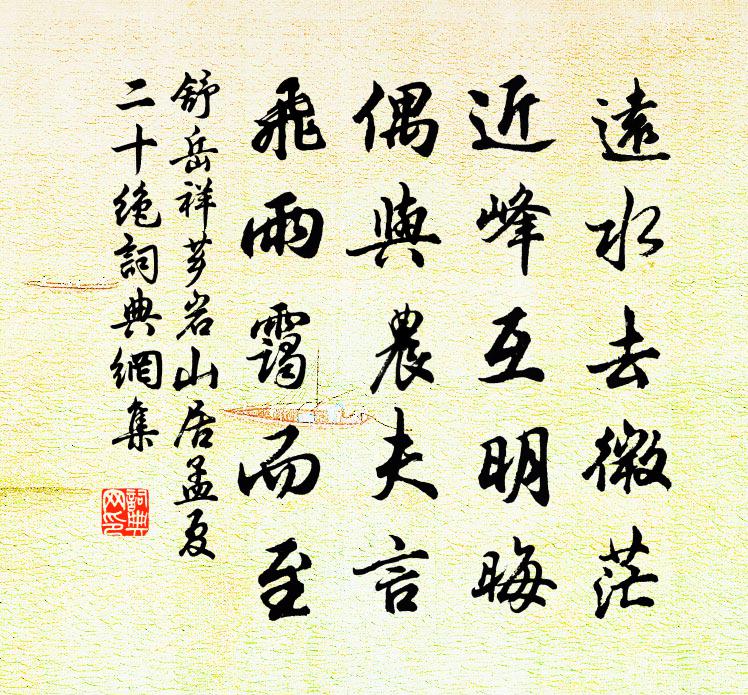 遠水去微茫
近峰互明晦
偶與農夫言
飛雨靄而至
舒岳祥夢岩山居孟夏
二十絶詞典網集
詞典網印